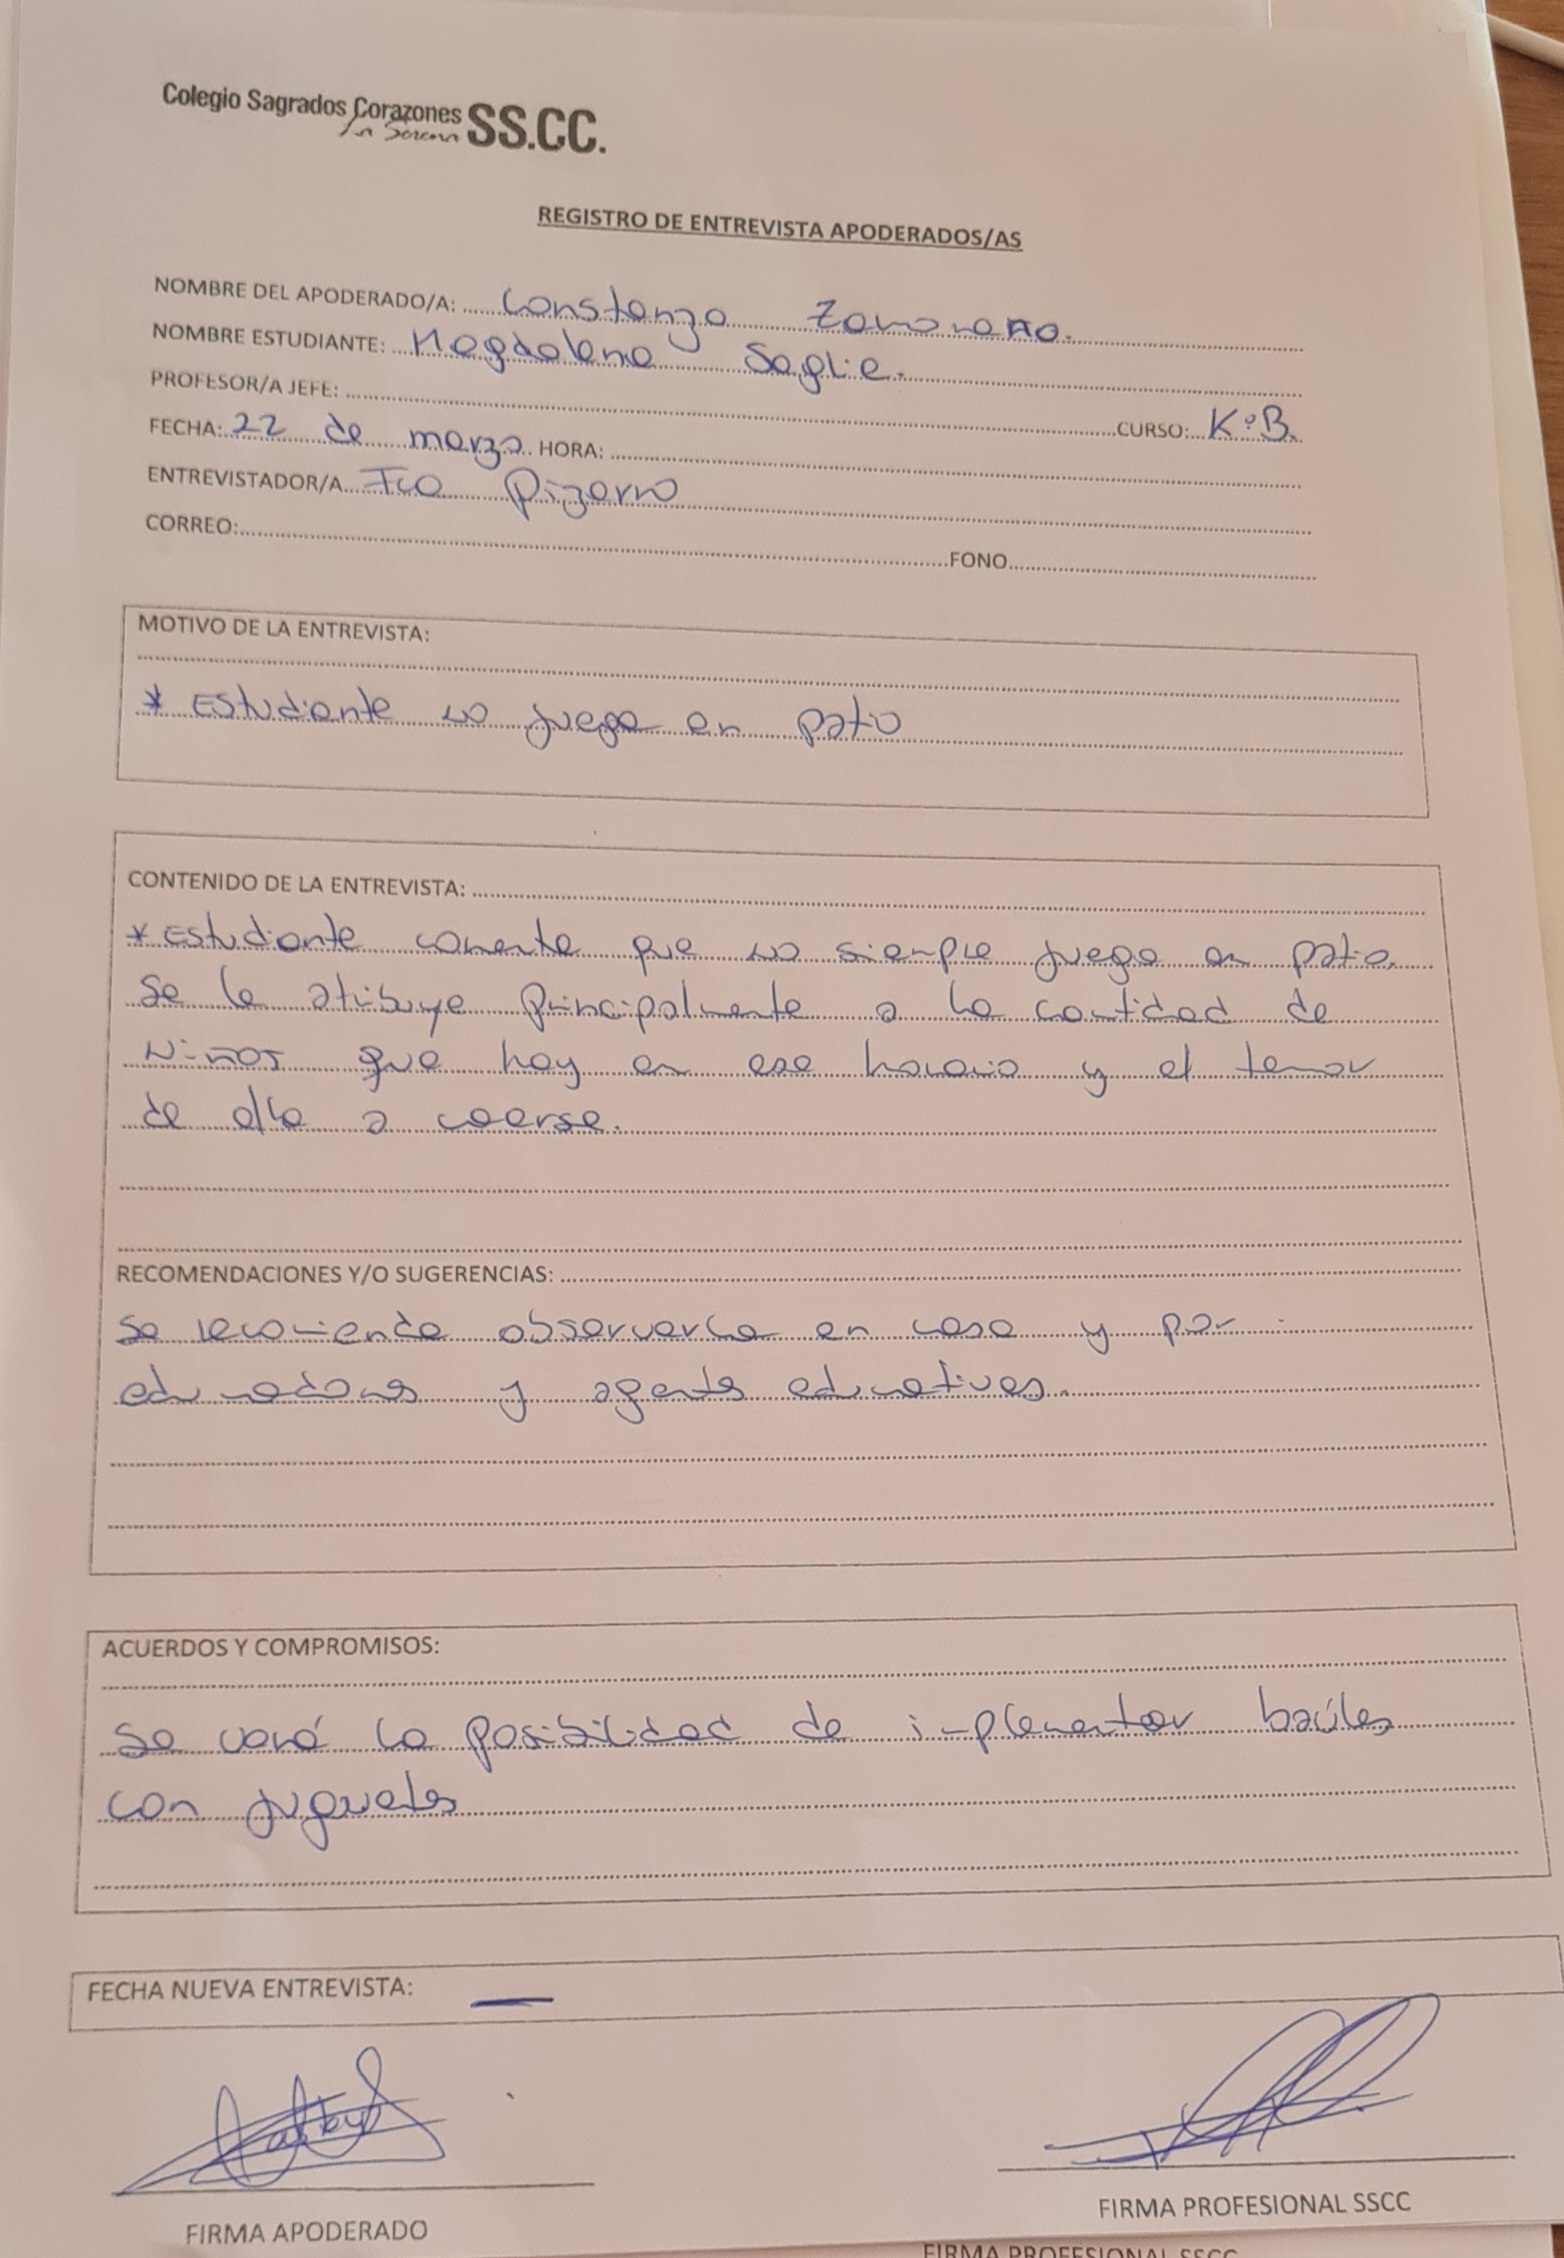 Colegio Sagrados Corazones SS.CC.
La Serena
REGISTRO DE ENTREVISTA APODERADOS/AS
NOMBRE DEL APODERADO/A: Constanza Zamorano.
NOMBRE ESTUDIANTE: Magdalena Saglie.
PROFESOR/A JEFE: CURSO: Kº B.
FECHA: 22 de marzo. HORA:
ENTREVISTADOR/A Fco Pizarro
CORREO: FONO
MOTIVO DE LA ENTREVISTA:
* Estudiante no juega en patio
CONTENIDO DE LA ENTREVISTA:
* Estudiante comenta que no siempre juega en patio.
Se le atribuye principalmente a la cantidad de
niños que hay en ese horario y el temor
de ella a caerse.
RECOMENDACIONES Y/O SUGERENCIAS:
Se recomienda observarla en casa y por
educadoras y agentes educativos.
ACUERDOS Y COMPROMISOS:
Se verá la posibilidad de implementar baúles
con juguetes
FECHA NUEVA ENTREVISTA: —
FIRMA APODERADO
FIRMA PROFESIONAL SSCC
FIRMA PROFESIONAL SSCC